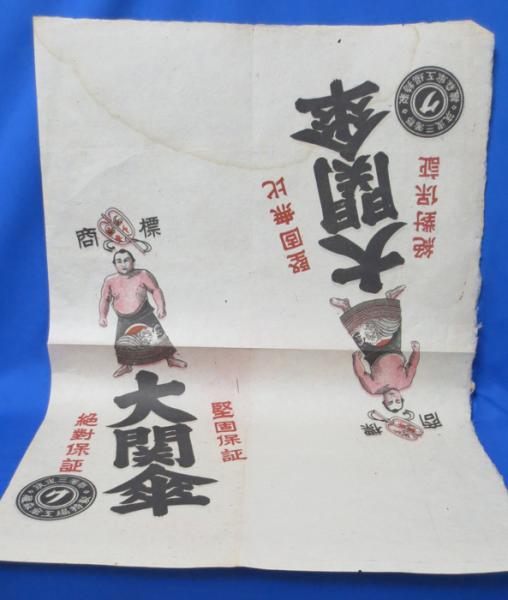 商標
大関傘
堅固保証
絶對保証
ク
商標
大関傘
堅固無比
絶對保証
ク